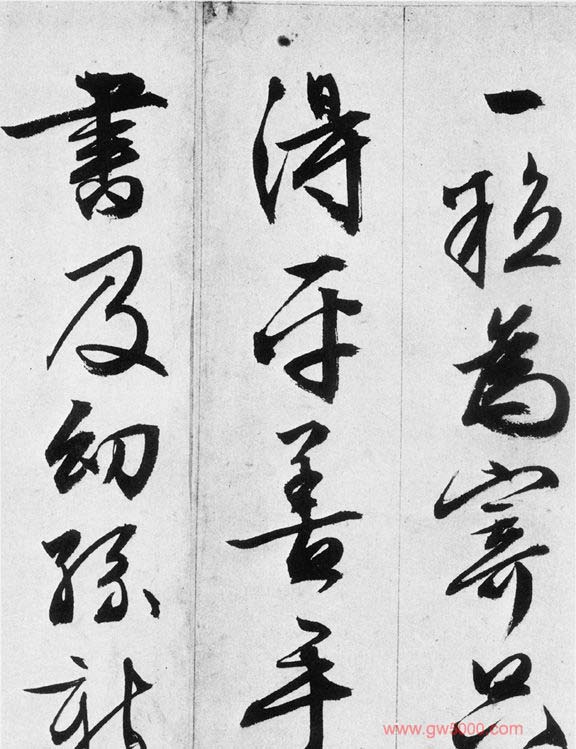 一為寄
得平善
書及幼孫
www.gw5000.com